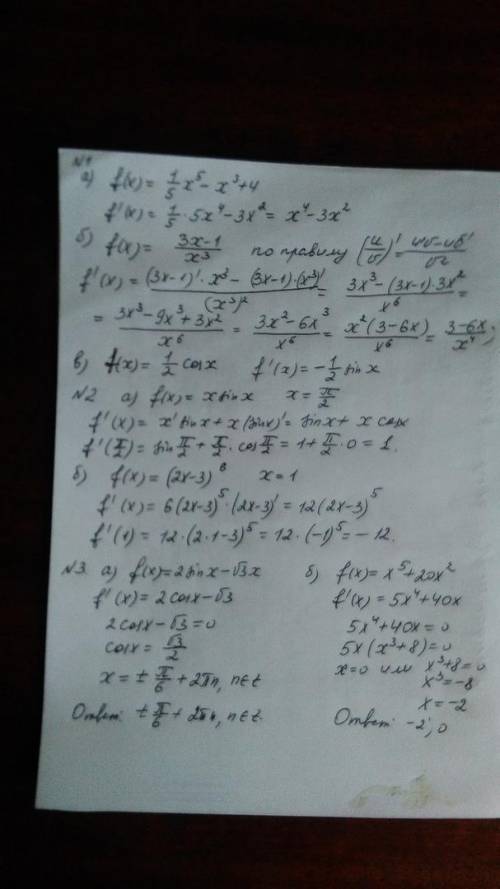 №1
а) f(x) = 1/5 x⁵ - x³ + 4
f'(x) = 1/5 · 5x⁴ - 3x² = x⁴ - 3x²
б) f(x) = (3x-1)/x³ по правилу (u/v)' = (u'v-uv')/v²
f'(x) = ((3x-1)'·x³ - (3x-1)·(x³)')/(x³)² = (3x³ - (3x-1)·3x²)/x⁶ =
= (3x³ - 9x³ + 3x²)/x⁶ = (3x² - 6x³)/x⁶ = x²(3-6x)/x⁶ = (3-6x)/x⁴;
в) f(x) = 1/2 cosx f'(x) = -1/2 sinx
№2 а) f(x) = x sinx x = π/2
f'(x) = x' sinx + x(sinx)' = sinx + x cosx
f'(π/2) = sin π/2 + π/2 · cos π/2 = 1 + π/2 · 0 = 1.
б) f(x) = (2x-3)⁶ x = 1
f'(x) = 6(2x-3)⁵·(2x-3)' = 12(2x-3)⁵
f'(1) = 12·(2·1-3)⁵ = 12·(-1)⁵ = -12.
№3 а) f(x) = 2sinx - √3x
f'(x) = 2cosx - √3
2cosx - √3 = 0
cosx = √3/2
x = ± π/6 + 2πn, n∈z
Ответ: ± π/6 + 2πn, n∈z.
б) f(x) = x⁵ + 20x²
f'(x) = 5x⁴ + 40x
5x⁴ + 40x = 0
5x(x³+8) = 0
x = 0 или x³+8 = 0
x³ = -8
x = -2
Ответ: -2; 0